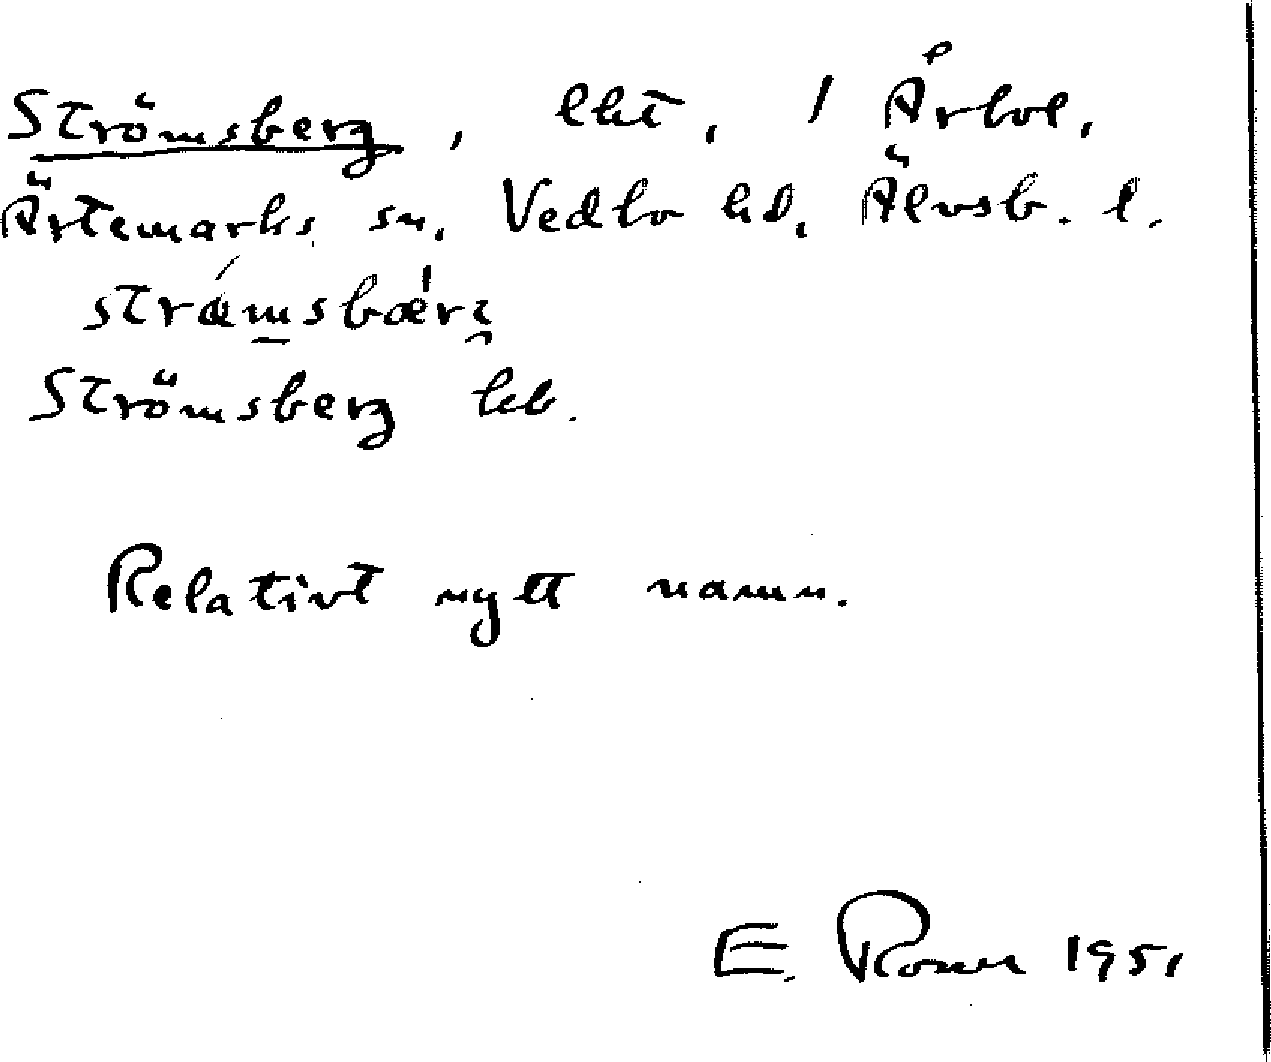 Strömsberg, lht, 1 Årbol,
Ärtemarks sn, Vedbo hd, Älvsb. l.
strámsbær
Strömsberg kb.
Relativt nytt namn.
E. 1951